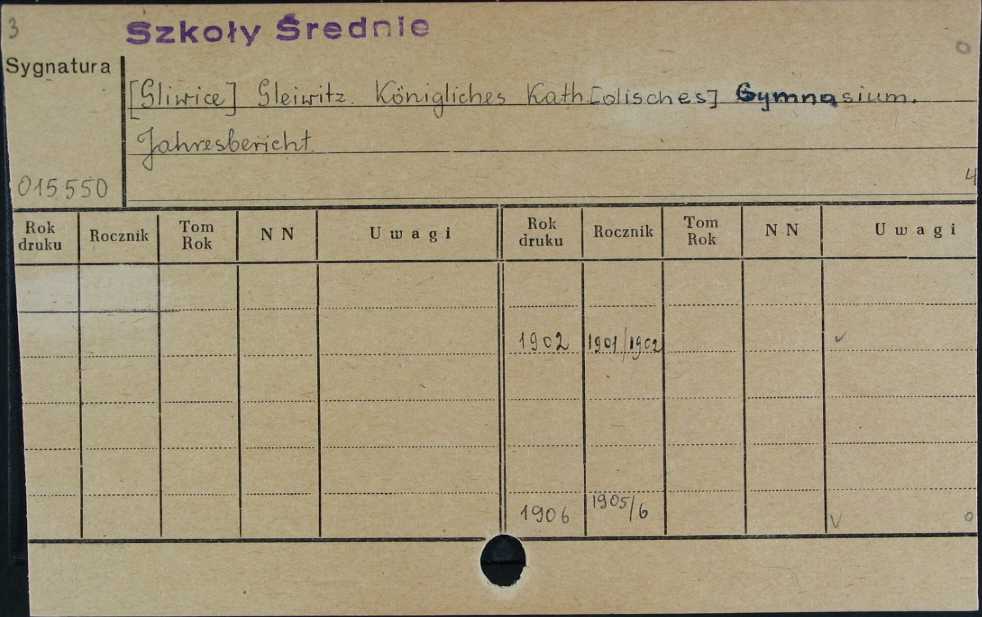 3
Szkoły Średnie
Sygnatura
[Gliwice] Gleiwitz. Königliches Kath[olisches] Gymnasium.
Jahresbericht
015550
4
Rok druku Rocznik Tom Rok NN Uwagi Rok druku Rocznik Tom Rok NN Uwagi
1902 1901/1902 ✓
1906 1905/6 v o